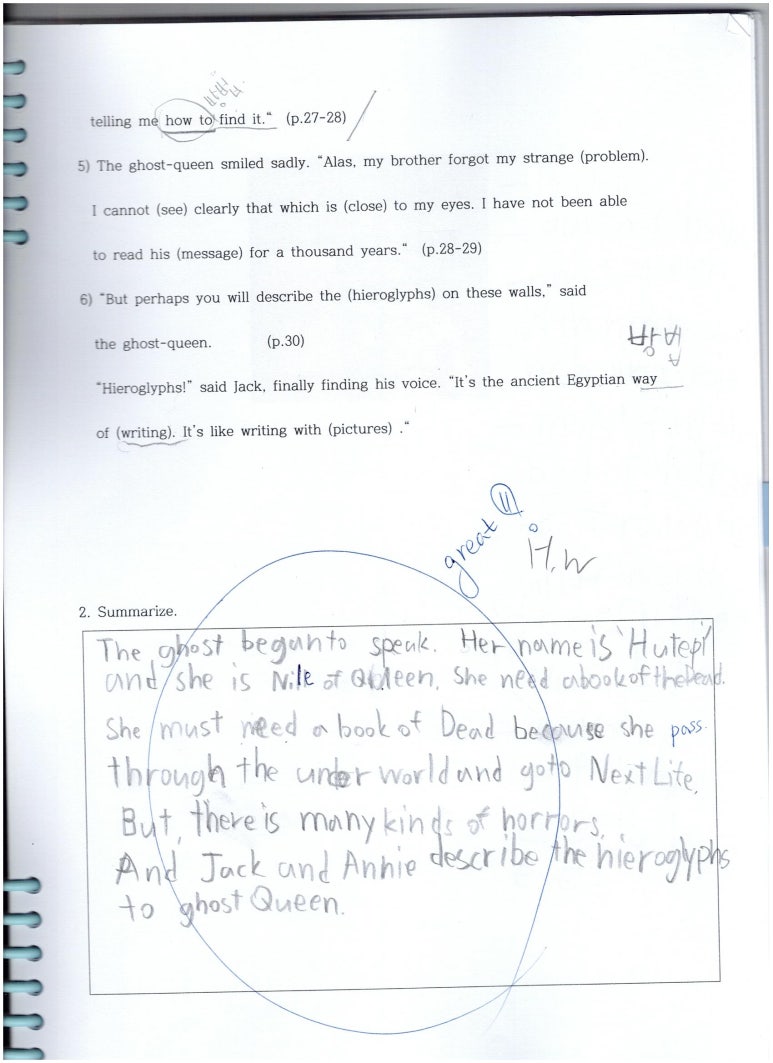 방법
telling me how to find it." (p.27-28)
5) The ghost-queen smiled sadly. "Alas, my brother forgot my strange (problem).
I cannot (see) clearly that which is (close) to my eyes. I have not been able
to read his (message) for a thousand years." (p.28-29)
6) "But perhaps you will describe the (hieroglyphs) on these walls," said
the ghost-queen. (p.30)
"Hieroglyphs!" said Jack, finally finding his voice. "It's the ancient Egyptian way
of (writing). It's like writing with (pictures) ."
great
H.W
2. Summarize.
The ghost began to speak. Her name is 'Hutepi'
and she is Nile of Queen. She need a book of the Dead.
She must need a book of Dead because she pass
through the under world and go to Next Life.
But, there is many kinds of horrors.
And Jack and Annie describe the hieroglyphs
to ghost Queen.